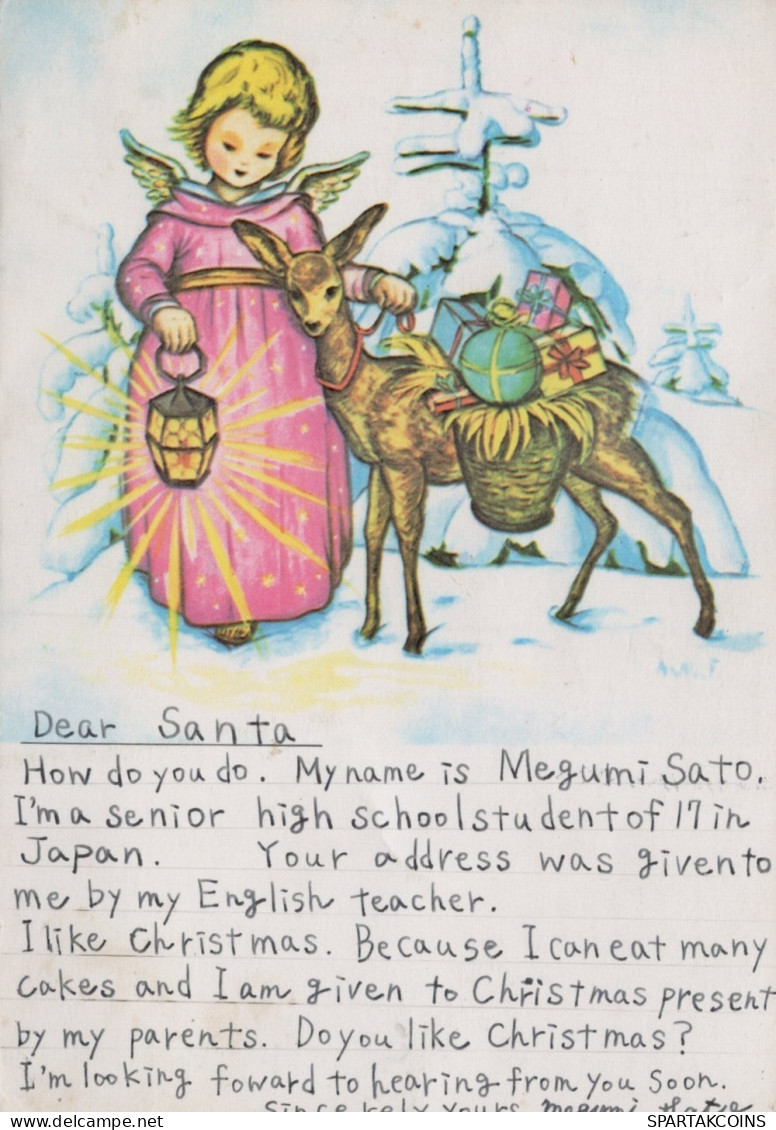 Dear Santa
How do you do. My name is Megumi Sato.
I'm a senior high school student of 17 in
Japan. Your address was given to
me by my English teacher.
I like Christmas. Because I can eat many
cakes and I am given to Christmas present
by my parents. Do you like Christmas?
I'm looking foward to hearing from you soon.
Sincerely yours, Megumi
SPARTAKCOINS